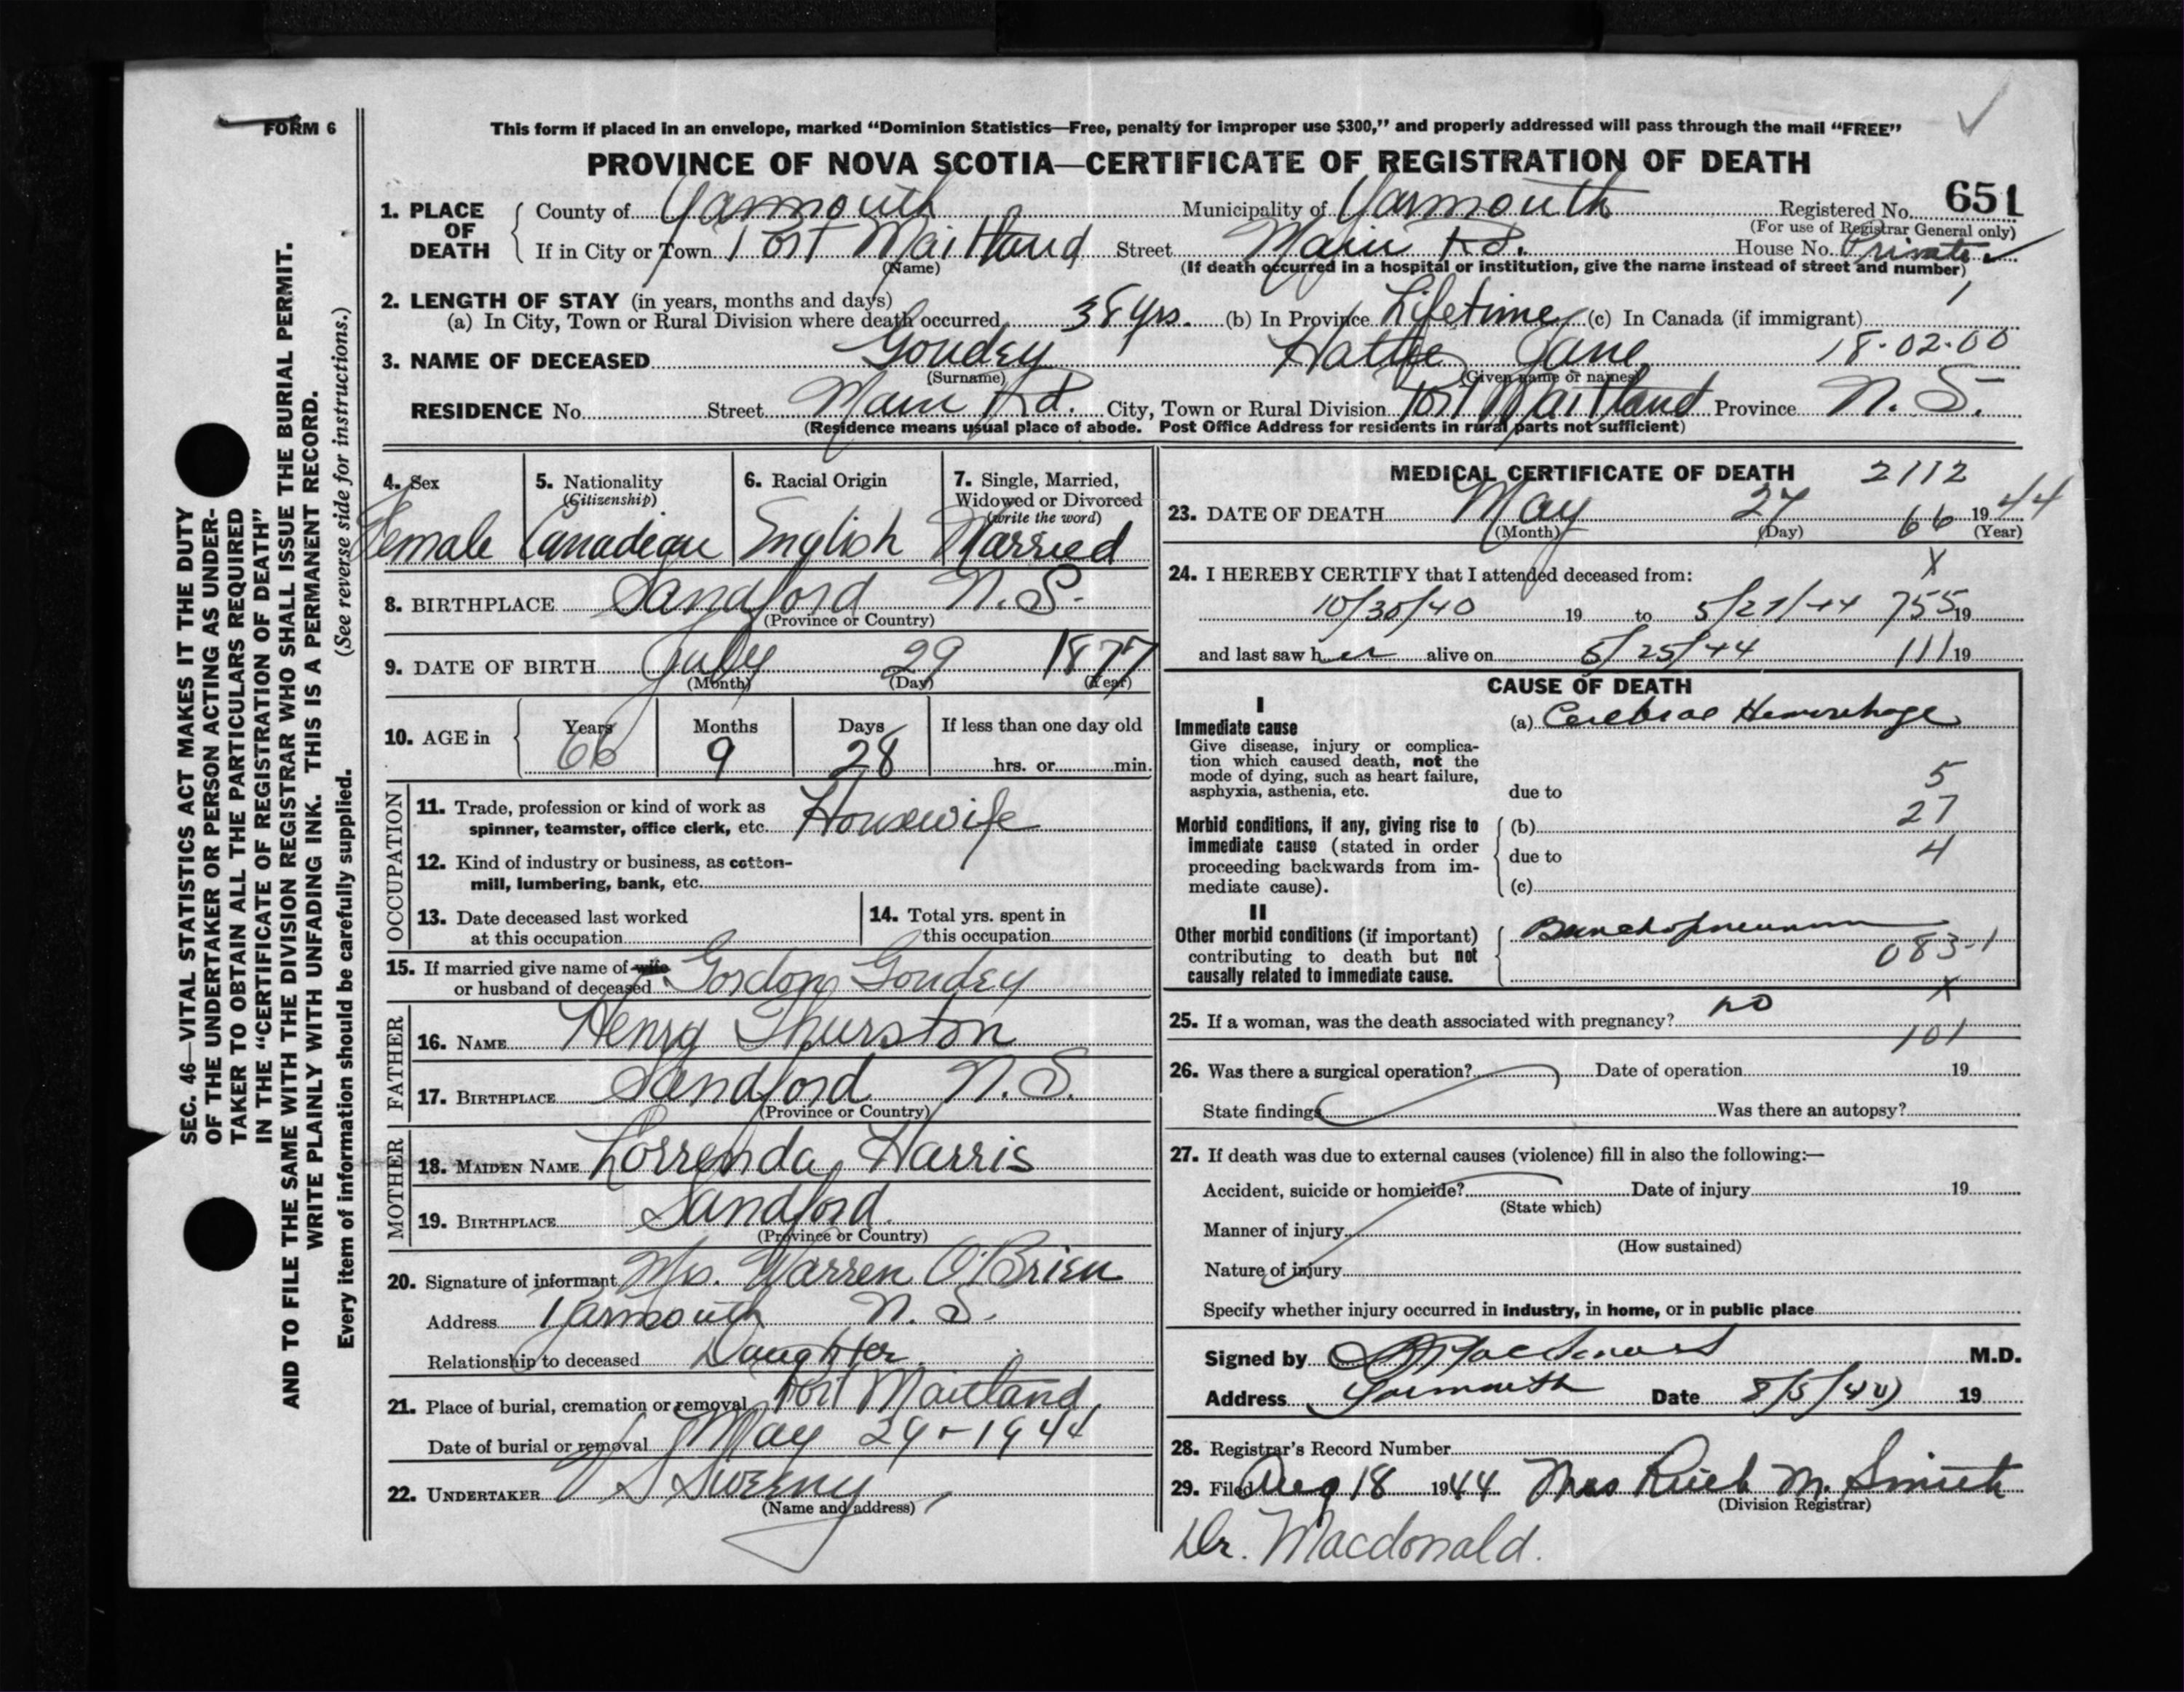 FORM 6
This form if placed in an envelope, marked "Dominion Statistics—Free, penalty for improper use $300," and properly addressed will pass through the mail "FREE"
PROVINCE OF NOVA SCOTIA—CERTIFICATE OF REGISTRATION OF DEATH
1. PLACE OF DEATH County of Yarmouth Municipality of Yarmouth Registered No. 651
(For use of Registrar General only)
If in City or Town Port Maitland Street Main Rd. House No. Private
(Name) (If death occurred in a hospital or institution, give the name instead of street and number)
2. LENGTH OF STAY (in years, months and days) 1
(a) In City, Town or Rural Division where death occurred 38 yrs. (b) In Province Lifetime (c) In Canada (if immigrant)
3. NAME OF DECEASED Goudey Hattie Jane 18-02-00
(Surname) (Given name or names)
RESIDENCE No. Street Main Rd. City, Town or Rural Division Port Maitland Province N. S.
(Residence means usual place of abode. Post Office Address for residents in rural parts not sufficient)
4. Sex 5. Nationality 6. Racial Origin 7. Single, Married,
(Citizenship) Widowed or Divorced
(write the word)
Female Canadian English Married
8. BIRTHPLACE Sandford N.S.
(Province or Country)
9. DATE OF BIRTH July 29 1877
(Month) (Day) (Year)
10. AGE in Years Months Days If less than one day old
66 9 28 hrs. or min.
OCCUPATION
11. Trade, profession or kind of work as
spinner, teamster, office clerk, etc. Housewife
12. Kind of industry or business, as cotton-
mill, lumbering, bank, etc.
13. Date deceased last worked
at this occupation
14. Total yrs. spent in
this occupation
15. If married give name of wife
or husband of deceased Gordon Goudey
FATHER
16. NAME Henry Thurston
17. BIRTHPLACE Sandford N.S.
(Province or Country)
MOTHER
18. MAIDEN NAME Lorrenda Harris
19. BIRTHPLACE Sandford
(Province or Country)
20. Signature of informant Mrs. Warren O'Brien
Address Yarmouth N. S.
Relationship to deceased Daughter
21. Place of burial, cremation or removal Port Maitland
Date of burial or removal May 29-1944
22. UNDERTAKER V S Sweeny
(Name and address)
MEDICAL CERTIFICATE OF DEATH 2112
23. DATE OF DEATH May 27 66 1944
(Month) (Day) (Year)
24. I HEREBY CERTIFY that I attended deceased from: X
10/30/40 19 to 5/27/44 755 19
and last saw her alive on 5/25/44 111 19
CAUSE OF DEATH
I
Immediate cause (a) Cerebral Hemorrhage
Give disease, injury or complica-
tion which caused death, not the
mode of dying, such as heart failure,
asphyxia, asthenia, etc. due to 5
Morbid conditions, if any, giving rise to (b) 27
immediate cause (stated in order due to 4
proceeding backwards from im-
mediate cause). (c)
II
Other morbid conditions (if important) Bronchopneumonia
contributing to death but not 083-1
causally related to immediate cause. X
25. If a woman, was the death associated with pregnancy? no
101
26. Was there a surgical operation? Date of operation 19
State findings Was there an autopsy?
27. If death was due to external causes (violence) fill in also the following:—
Accident, suicide or homicide? Date of injury 19
(State which)
Manner of injury
(How sustained)
Nature of injury
Specify whether injury occurred in industry, in home, or in public place
Signed by M.D.
Address Yarmouth Date 19
28. Registrar's Record Number
29. Filed Aug 18 1944 Mrs Ruth M. Smith
(Division Registrar)
Dr. Macdonald.
SEC. 46—VITAL STATISTICS ACT MAKES IT THE DUTY
OF THE UNDERTAKER OR PERSON ACTING AS UNDER-
TAKER TO OBTAIN ALL THE PARTICULARS REQUIRED
IN THE "CERTIFICATE OF REGISTRATION OF DEATH"
AND TO FILE THE SAME WITH THE DIVISION REGISTRAR WHO SHALL ISSUE THE BURIAL PERMIT.
WRITE PLAINLY WITH UNFADING INK. THIS IS A PERMANENT RECORD.
Every item of information should be carefully supplied. (See reverse side for instructions.)